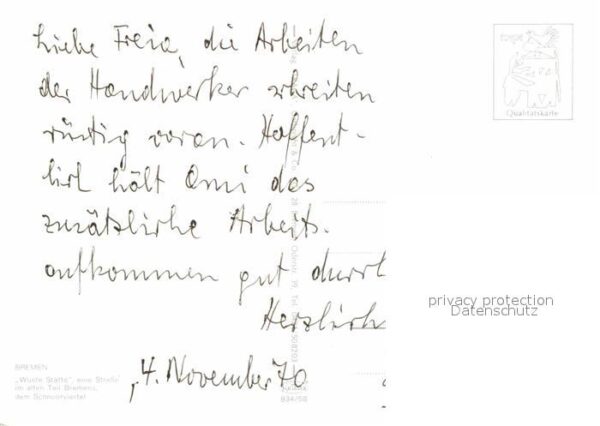 Liebe Freia, die Arbeiten
der Handwerker schreiten
rüstig voran. Hoffent-
lich hält Omi das
zusätzliche Arbeits-
aufkommen gut durch
Herzlich
4. November 70
BREMEN
„Wüste Stätte", eine Straße
im alten Teil Bremens,
dem Schnoorviertel
834/58
Qualitätskarte
privacy protection
Datenschutz